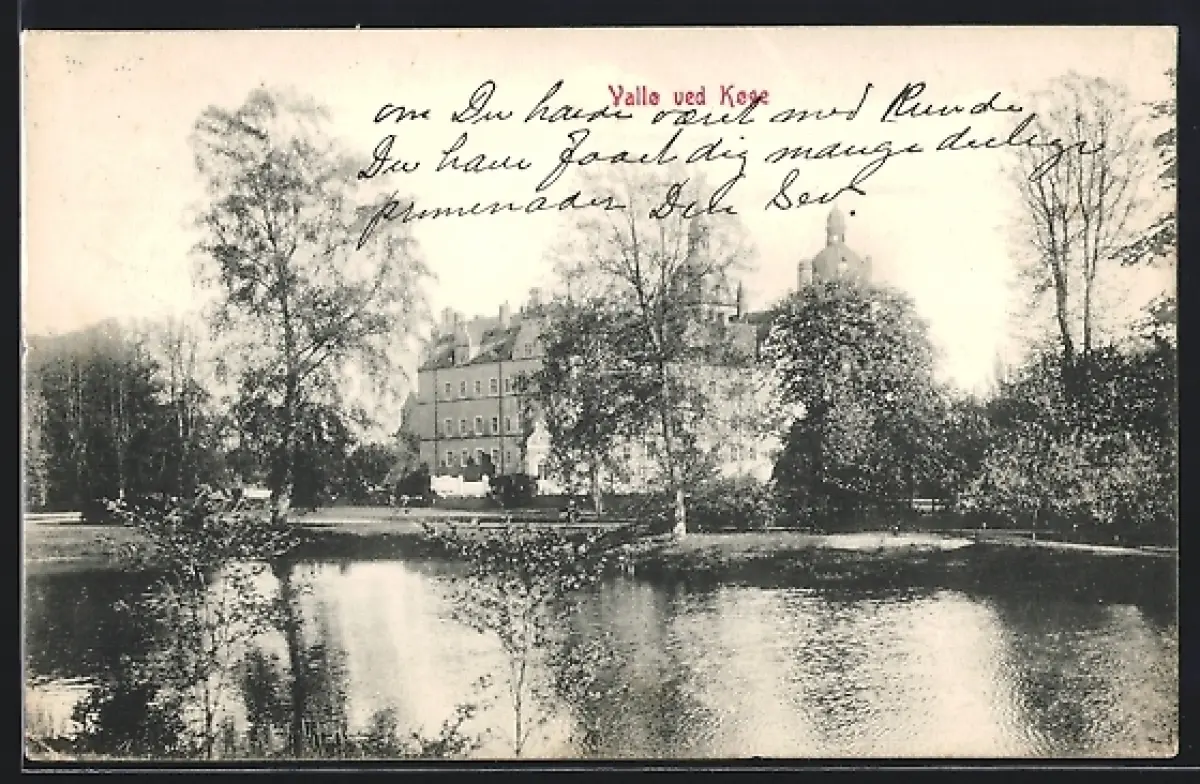 Vallø ved Køge
om Du havde været med Runde
Du have faaet dig mange deilige
promenader Din